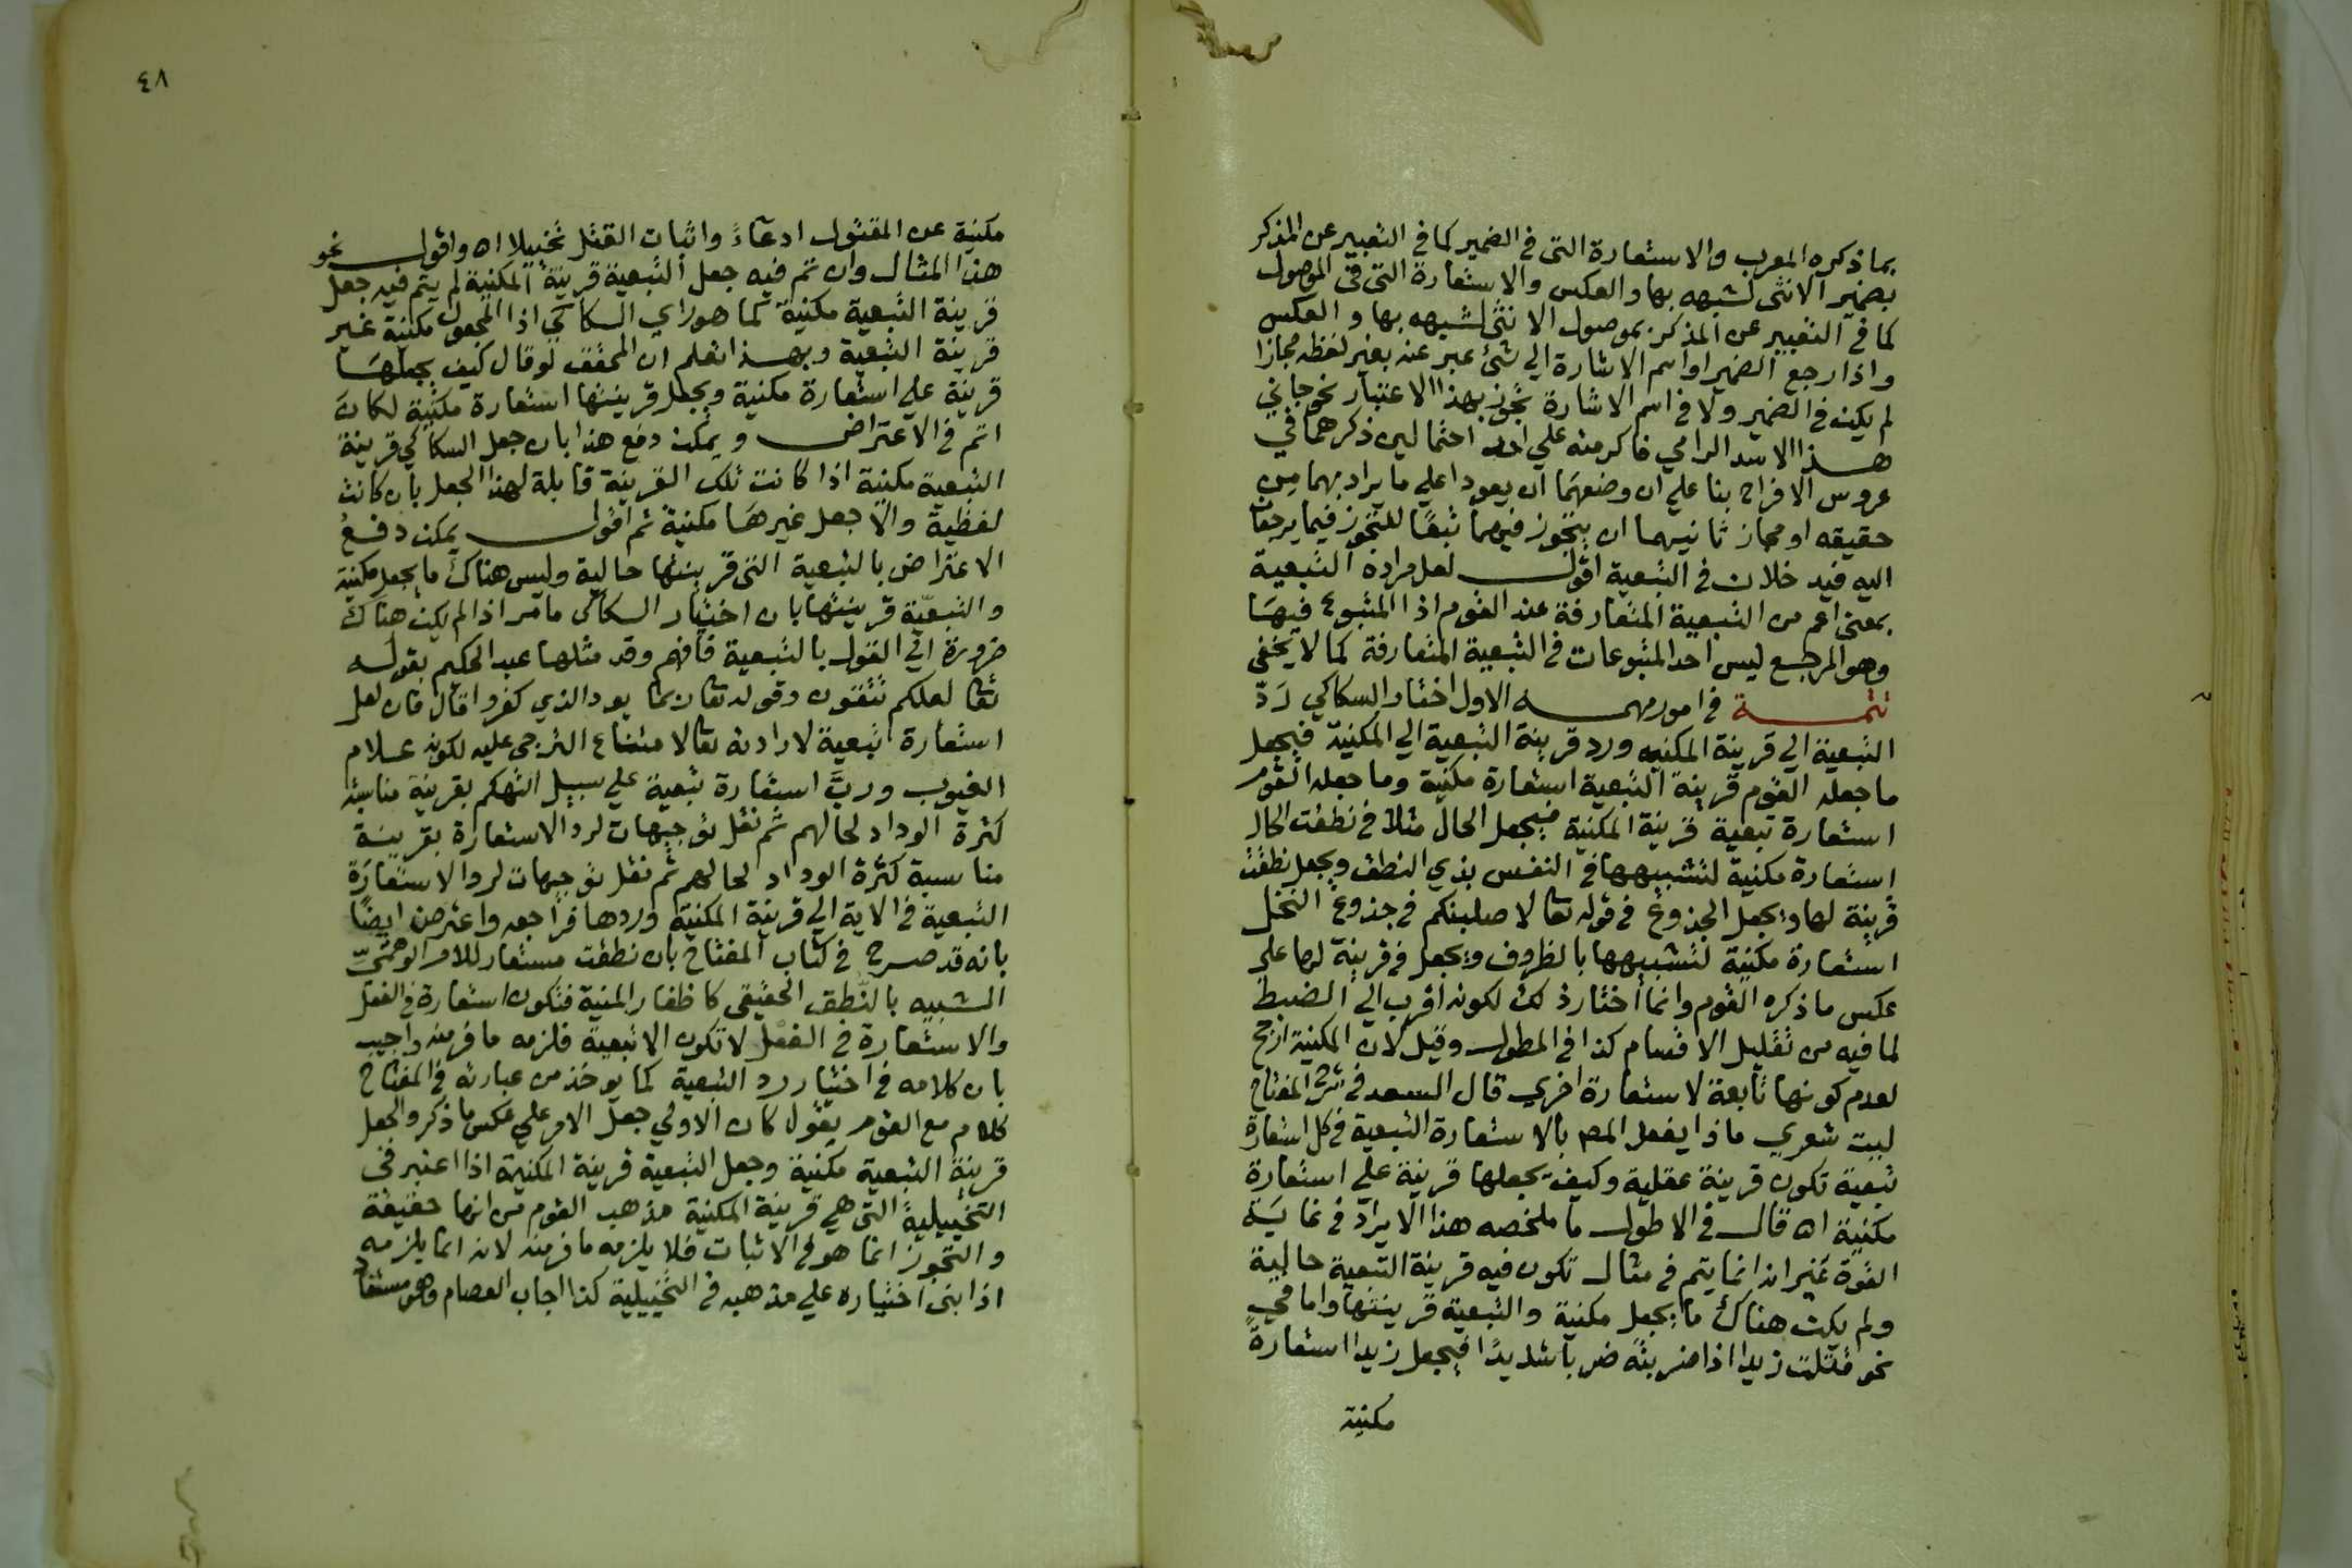 بما ذكره المعرب والاستعارة التى فى الضمير كما فى التعبير عن المذكر
بضمير الانثى لشبهه بها والعكس والاستعارة التى فى الموصول
كما فى التعبير عن المذكر بموصول الانثى لشبهه بها والعكس
واذا رجع الضمير او اسم الاشارة الي شئ عبر عنه بغير لفظه مجازا
لم يكن فى الضمير ولا فى اسم الاشارة تجوز بهذا الاعتبار نحو جاني
هذا الاسد الرامي فاكرمته علي احد احتمالين ذكرهما في
عروس الافراح بنا علي ان وضعهما ان يعودا علي ما يراد بهما من
حقيقه او مجاز ثانيهما ان يتجوز فيهما تبعًا للتجوز فيما يرجعان
اليه فيدخلان فى التبعية اقول لعل مراده التبعية
بمعنى اعم من التبعية المتعارفة عند القوم اذا المتبوع فيهَا
وهو المرجع ليس احد المتبوعات فى التبعية المتعارفة كما لا يخفى
تتمة فى امور مهمه الاول اختار السكاكي رَدّ
التبعية الي قرينة المكنيه ورد قرينة التبعية الي المكنية فيجعل
ما جعله القوم قرينة التبعية استعارة مكنية وما جعله القوم
استعارة تبعية قرينة المكنية فيجعل الحال مثلا فى نطقت الحال
استعارة مكنية لتشبيهها فى النفس بذي النطق ويجعل نطقت
قرينة لها ويجعل الجذوع فى قوله تعا لاصلبنكم فى جذوع النخل
استعارة مكنية لتشبيهها بالظروف ويجعل فى قرينة لها علي
عكس ما ذكره القوم وانما اختار ذلك لكونه اقرب الي الضبط
لما فيه من تقليل الاقسام كذا فى المطول وقيل لان المكنية ارجح
لعدم كونها تابعة لاستعارة اخري قال السعد فى شرح المفتاح
ليت شعري ماذا يفعل المص بالاستعارة التبعية فى كل استعارة
تبعية تكون قرينة عقلية وكيف يجعلها قرينة علي استعارة
مكنية اه قال فى الاطول ما ملخصه هذا الايراد فى غايَة
القوة غير انه انما يتم فى مثال تكون فيه قرينة التبعية حالية
ولم يكن هناك ما يجعل مكنية والتبعية قرينتها واما في
نحو قتلت زيدا اذا ضربته ضربا شديدًا فيجعل زيدا استعارةً
مكنية
٤٨
مكنية عن المقتول ادعآءً واثبات القتل تخييلا اه واقول نحو
هذا المثال وان تم فيه جعل التبعية قرينة المكنية لم يتم فيه جعل
قرينة التبعية مكنية كما هو راي السكاكي اذا المجعول مكنية غير
قرينة التبعية وبهذا تعلم ان المحقق لو قال كيف يجعلهَا
قرينة علي استعارة مكنية ويجعل قرينتها استعارة مكنية لكان
اتم فى الاعتراض ويمكن دفع هذا بان جعل السكاكي قرينة
التبعية مكنية اذا كانت تلك القرينة قابلة لهذا الجعل بان كانت
لفظية والا جعل غيرهَا مكنية ثم اقول يمكن دفع
الاعتراض بالتبعية التى قرينتها حالية وليس هناك ما يجعل مكنية
والتبعيّة قرينتها بان اختيار السكاكى ما مر اذا لم يكن هناك
ضرورة الي القول بالتبعية فافهم وقد مثلها عبد الحكيم بقوله
تعا لعلكم تتقون وقوله تعا ربما يود الذي كفروا قال فان لعل
استعارة تبعية لارادته تعا لامتناع الترجى عليه لكونه علام
الغيوب وربَّ استعارة تبعية علي سبيل التهكم بقرينة مناسبة
كثرة الوداد لحالهم ثم نقل توجيهات لرد الاستعارة بقرينة
مناسبة كثرة الوداد لحالهم ثم نقل توجيهات لرد الاستعارَة
التبعية فى الاية الي قرينة المكنية وردها فراجعه واعترض ايضًا
بانه قد صرح فى كتاب المفتاح بان نطقت مستعار للامر الوهمىّ
الشبيه بالنّطق الحقيقى كاظفار المنية فتكون استعارة فى الفعل
والاستعارة فى الفعل لا تكون الا تبعية فلزمه ما فر منه واجيب
بان كلامه فى اختيار رد التبعية كما يوخذ من عبارته فى المفتاح
كلام مع القوم يقول كان الاولي جعل الامر علي عكس ما ذكر والجعل
قرينة التبعية مكنية وجعل التبعية قرينة المكنية اذا اعتبر فى
التخييلية التى هي قرينة المكنية مذهب القوم من انها حقيقة
والتجوز انما هو فى الاثبات فلا يلزمه ما فر منه لانه انما يلزمه
اذا بنى اختياره علي مذهبه فى التخييلية كذا اجاب العصام وهو مستفاد